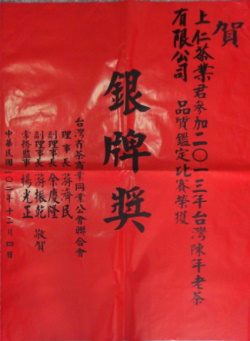 賀
上仁茶業君參加二〇一三年台灣陳年老茶
有限公司 品質鑑定比賽榮獲
銀牌獎
台灣省茶商業同業公會聯合會
理事長 蔣濟民
副理事長 余慶隆
副理事長 蔣振苑 敬賀
常務監事 楊光正
中華民國一〇二年十二月四日